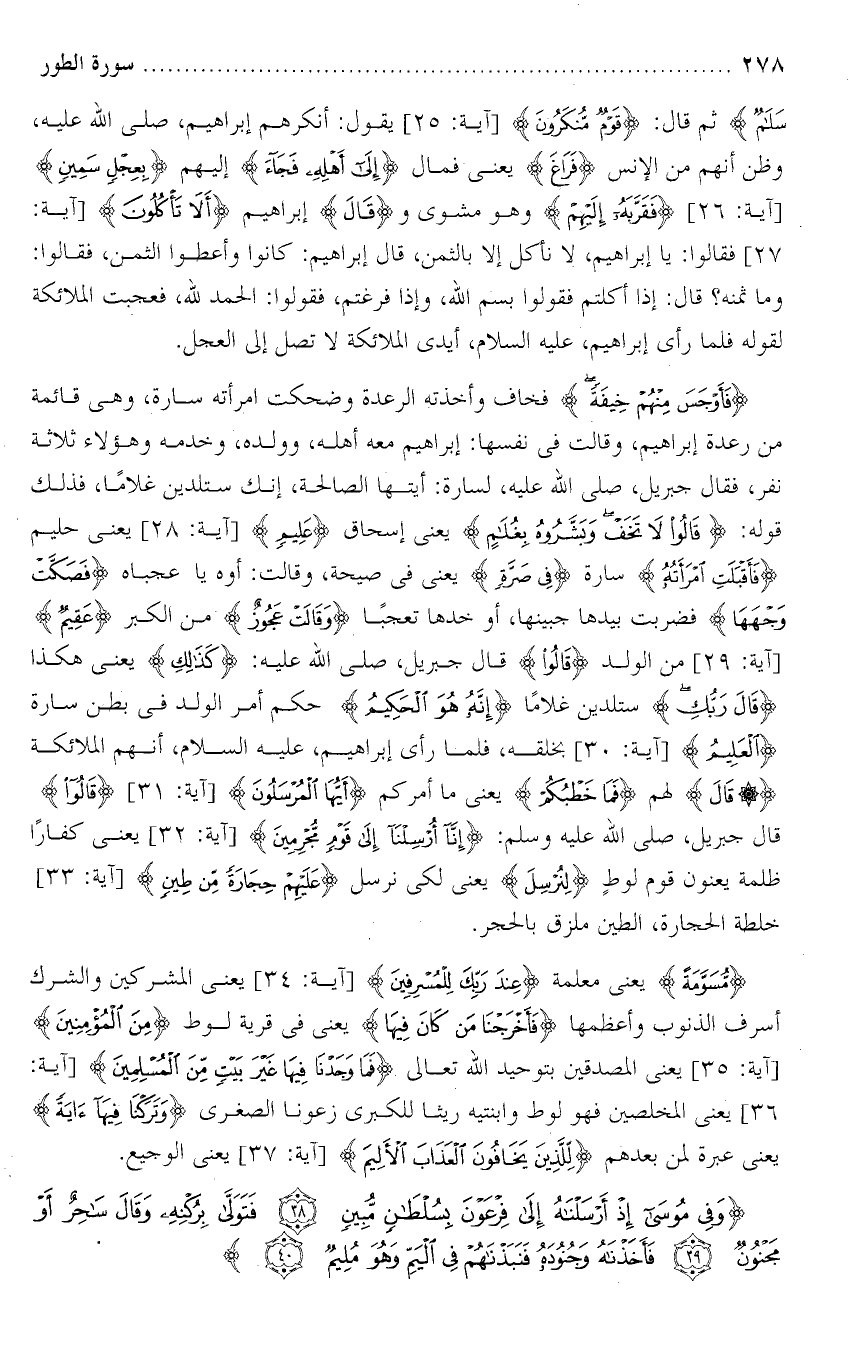 ٢٧٨ ........................................................................ سورة الطور
سَلَٰمٌ﴾ ثم قال: ﴿قَوْمٌ مُّنكَرُونَ﴾ [آية: ٢٥] يقول: أنكرهم إبراهيم، صلى الله عليه،
وظن أنهم من الإنس ﴿فَرَاغَ﴾ يعنى فمال ﴿إِلَىٰٓ أَهْلِهِۦ فَجَآءَ﴾ إليهم ﴿بِعِجْلٍ سَمِينٍ﴾
[آية: ٢٦] ﴿فَقَرَّبَهُۥٓ إِلَيْهِمْ﴾ وهو مشوى و﴿قَالَ﴾ إبراهيم ﴿أَلَا تَأْكُلُونَ﴾ [آية:
٢٧] فقالوا: يا إبراهيم، لا نأكل إلا بالثمن، قال إبراهيم: كانوا وأعطوا الثمن، فقالوا:
وما ثمنه؟ قال: إذا أكلتم فقولوا بسم الله، وإذا فرغتم، فقولوا: الحمد لله، فعجبت الملائكة
لقوله فلما رأى إبراهيم، عليه السلام، أيدى الملائكة لا تصل إلى العجل.
﴿فَأَوْجَسَ مِنْهُمْ خِيفَةً ۖ﴾ فخاف وأخذته الرعدة وضحكت امرأته سارة، وهى قائمة
من رعدة إبراهيم، وقالت فى نفسها: إبراهيم معه أهله، وولده، وخدمه وهؤلاء ثلاثة
نفر، فقال جبريل، صلى الله عليه، لسارة: أيتها الصالحة، إنك ستلدين غلامًا، فذلك
قوله: ﴿قَالُوا۟ لَا تَخَفْ ۖ وَبَشَّرُوهُ بِغُلَٰمٍ﴾ يعنى إسحاق ﴿عَلِيمٍ﴾ [آية: ٢٨] يعنى حليم
﴿فَأَقْبَلَتِ ٱمْرَأَتُهُۥ﴾ سارة ﴿فِى صَرَّةٍ﴾ يعنى فى صيحة، وقالت: أوه يا عجباه ﴿فَصَكَّتْ
وَجْهَهَا﴾ فضربت بيدها جبينها، أو خدها تعجبًا ﴿وَقَالَتْ عَجُوزٌ﴾ من الكبر ﴿عَقِيمٌ﴾
[آية: ٢٩] من الولد ﴿قَالُوا۟﴾ قال جبريل، صلى الله عليه: ﴿كَذَٰلِكِ﴾ يعنى هكذا
﴿قَالَ رَبُّكِ ۖ﴾ ستلدين غلامًا ﴿إِنَّهُۥ هُوَ ٱلْحَكِيمُ﴾ حكم أمر الولد فى بطن سارة
﴿ٱلْعَلِيمُ﴾ [آية: ٣٠] بخلقه، فلما رأى إبراهيم، عليه السلام، أنهم الملائكة
﴿۞ قَالَ﴾ لهم ﴿فَمَا خَطْبُكُمْ﴾ يعنى ما أمركم ﴿أَيُّهَا ٱلْمُرْسَلُونَ﴾ [آية: ٣١] ﴿قَالُوٓا۟﴾
قال جبريل، صلى الله عليه وسلم: ﴿إِنَّآ أُرْسِلْنَآ إِلَىٰ قَوْمٍ مُّجْرِمِينَ﴾ [آية: ٣٢] يعنى كفارًا
ظلمة يعنون قوم لوطٍ ﴿لِنُرْسِلَ﴾ يعنى لكى نرسل ﴿عَلَيْهِمْ حِجَارَةً مِّن طِينٍ﴾ [آية: ٣٣]
خلطة الحجارة، الطين ملزق بالحجر.
﴿مُّسَوَّمَةً﴾ يعنى معلمة ﴿عِندَ رَبِّكَ لِلْمُسْرِفِينَ﴾ [آية: ٣٤] يعنى المشركين والشرك
أسرف الذنوب وأعظمها ﴿فَأَخْرَجْنَا مَن كَانَ فِيهَا﴾ يعنى فى قرية لوط ﴿مِنَ ٱلْمُؤْمِنِينَ﴾
[آية: ٣٥] يعنى المصدقين بتوحيد الله تعالى ﴿فَمَا وَجَدْنَا فِيهَا غَيْرَ بَيْتٍ مِّنَ ٱلْمُسْلِمِينَ﴾ [آية:
٣٦] يعنى المخلصين فهو لوط وابنتيه ريثا للكبرى زعونا الصغرى ﴿وَتَرَكْنَا فِيهَآ ءَايَةً﴾
يعنى عبرة لمن بعدهم ﴿لِّلَّذِينَ يَخَافُونَ ٱلْعَذَابَ ٱلْأَلِيمَ﴾ [آية: ٣٧] يعنى الوجيع.
﴿وَفِى مُوسَىٰٓ إِذْ أَرْسَلْنَٰهُ إِلَىٰ فِرْعَوْنَ بِسُلْطَٰنٍ مُّبِينٍ ٣٨ فَتَوَلَّىٰ بِرُكْنِهِۦ وَقَالَ سَٰحِرٌ أَوْ
مَجْنُونٌ ٣٩ فَأَخَذْنَٰهُ وَجُنُودَهُۥ فَنَبَذْنَٰهُمْ فِى ٱلْيَمِّ وَهُوَ مُلِيمٌ ٤٠﴾